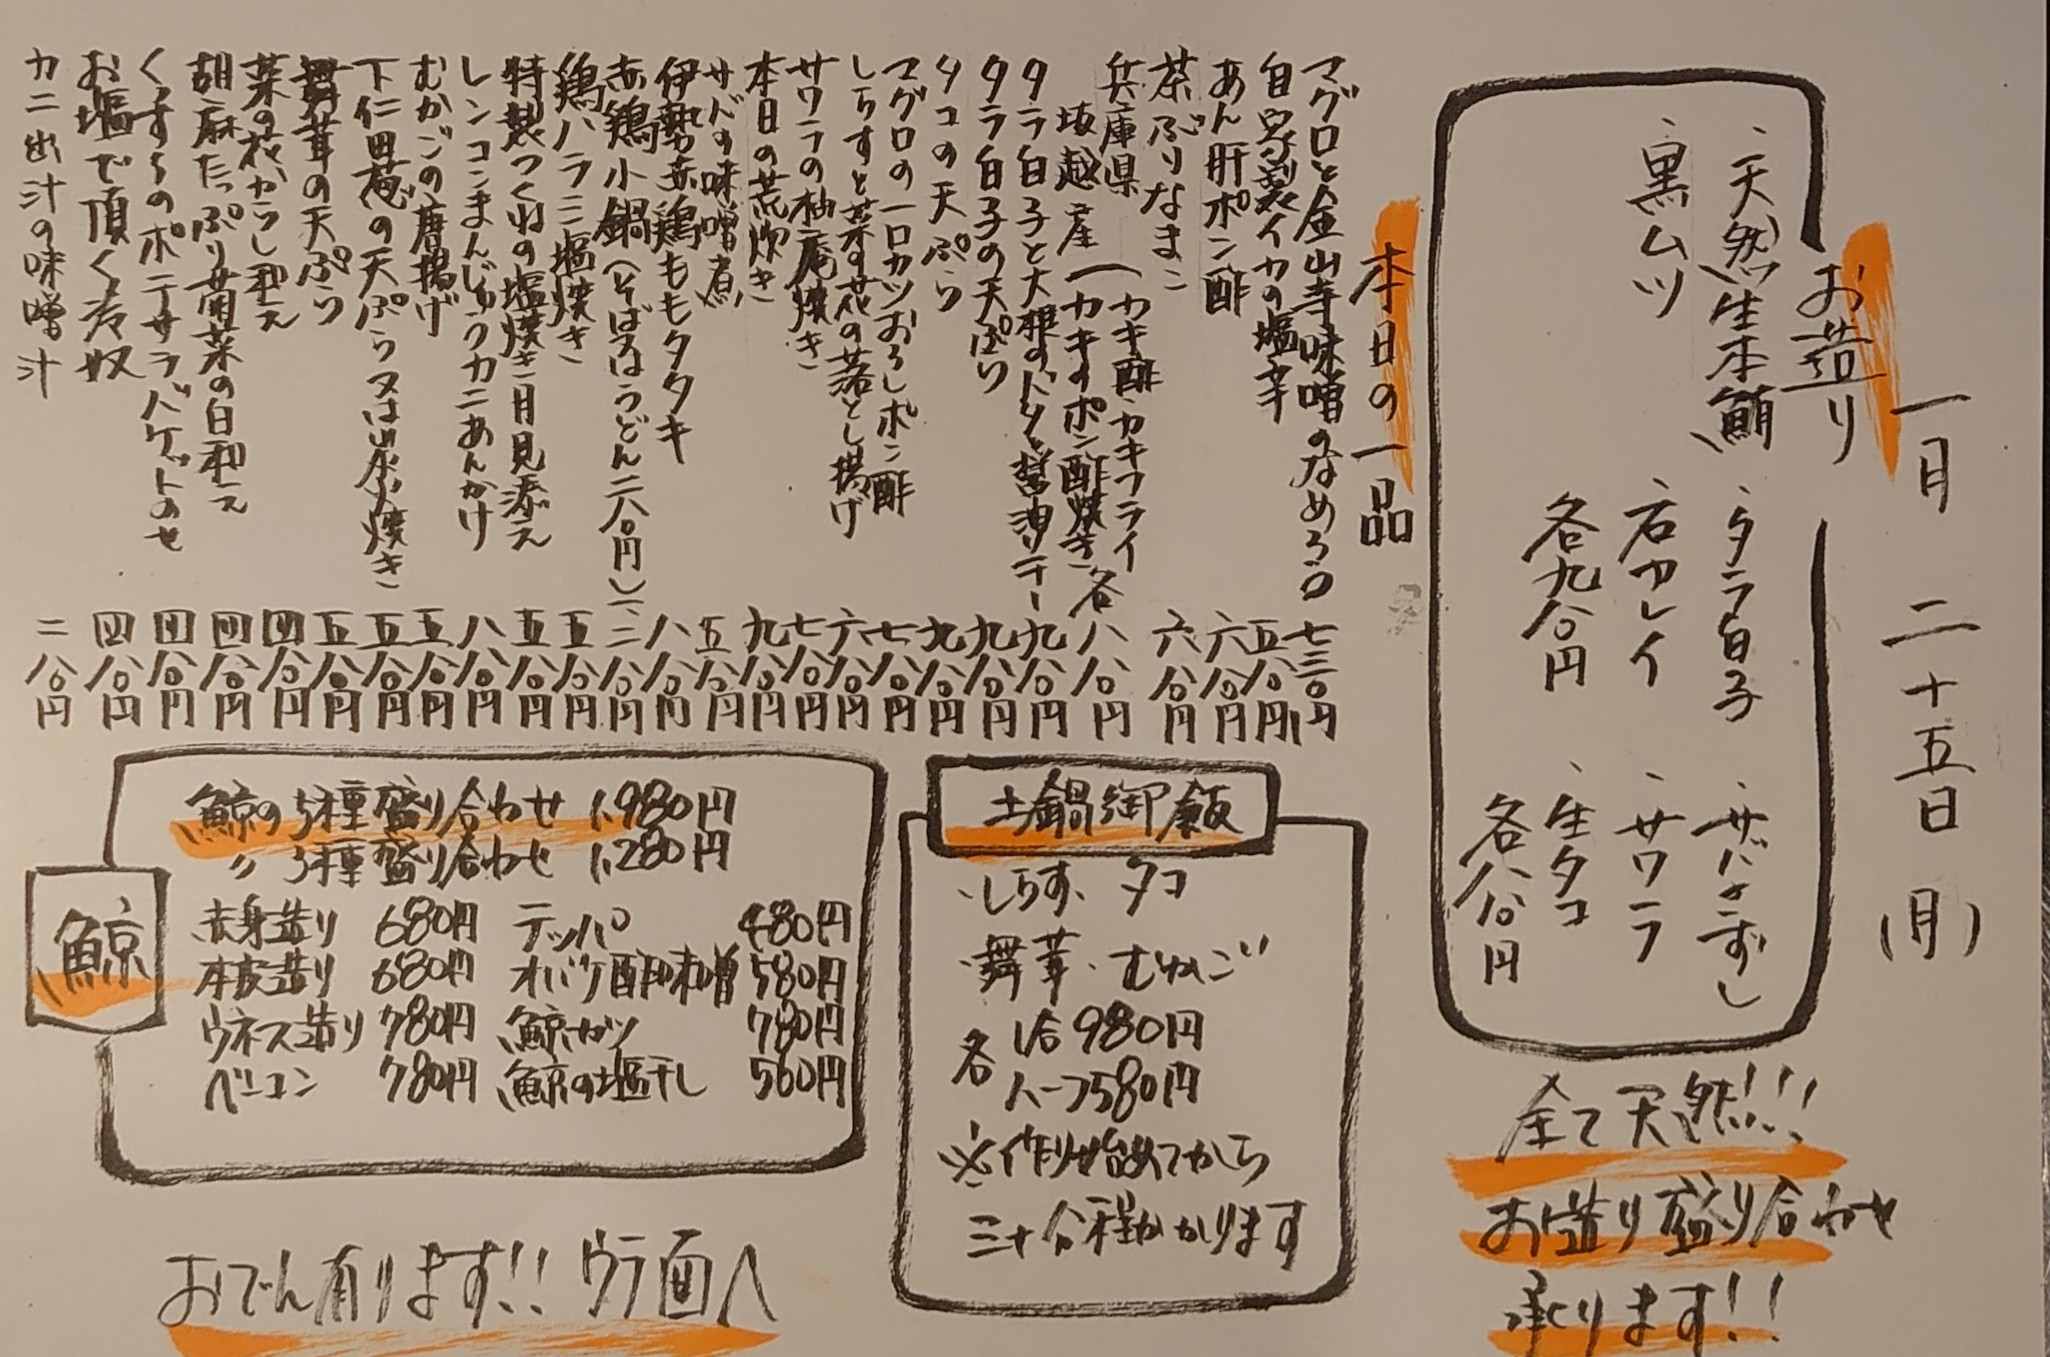 一月 二十五日 (月)
お造り
、天然生本鮪 、タラ白子 、サバきずし
、黒ムツ 、石カレイ 、サワラ
各九八〇円 、生タコ
各八八〇円
全て天然!!!
お造り盛り合わせ
承ります!!
本日の一品
マグロと金山寺味噌のなめろう 七三〇円
自家製イカの塩辛 五八〇円
あん肝ポン酢 六八〇円
茶ぶりなまこ 六八〇円
兵庫県 坂越産 (カキ酢・カキフライ
カキのポン酢焼き 各八八〇円
タラ白子と大根のバター醤油ソテー 九八〇円
タラ白子の天ぷら 九八〇円
タコの天ぷら 九八〇円
マグロの一口カツおろしポン酢 七八〇円
しらすと菜の花の落とし揚げ 六八〇円
サワラの柚庵焼き 七八〇円
本日の荒炊き 九八〇円
サバの味噌煮 五八〇円
伊勢赤鶏ももタタキ 八八〇円
赤鶏小鍋(そば又はうどん二八〇円) 一、二八〇円
鶏ハラミ塩焼き 五八〇円
特製つくねの塩焼き 月見添え 五八〇円
レンコンまんじゅうカニあんかけ 八八〇円
むかごの唐揚げ 五八〇円
下仁田葱の天ぷら又は炭火焼き 五八〇円
舞茸の天ぷら 五八〇円
菜の花からし和え 四八〇円
胡麻たっぷり菊菜の白和え 四八〇円
くずもちのポテサラバゲットのせ 四八〇円
お塩で頂く冷奴 四八〇円
カニ出汁の味噌汁 二八〇円
土鍋御飯
・しらす、タコ
・舞茸・むかご
各 1合 980円
ハーフ580円
※作り始めてから
三十分程かかります
鯨
鯨の5種盛り合わせ 1,980円
〃 3種盛り合わせ 1,280円
赤身造り 680円 テッパ 480円
本皮造り 680円 オバケ酢味噌 580円
ウネス造り 780円 鯨カツ 780円
ベーコン 780円 鯨の塩干し 560円
おでん有ります!! ウラ面へ